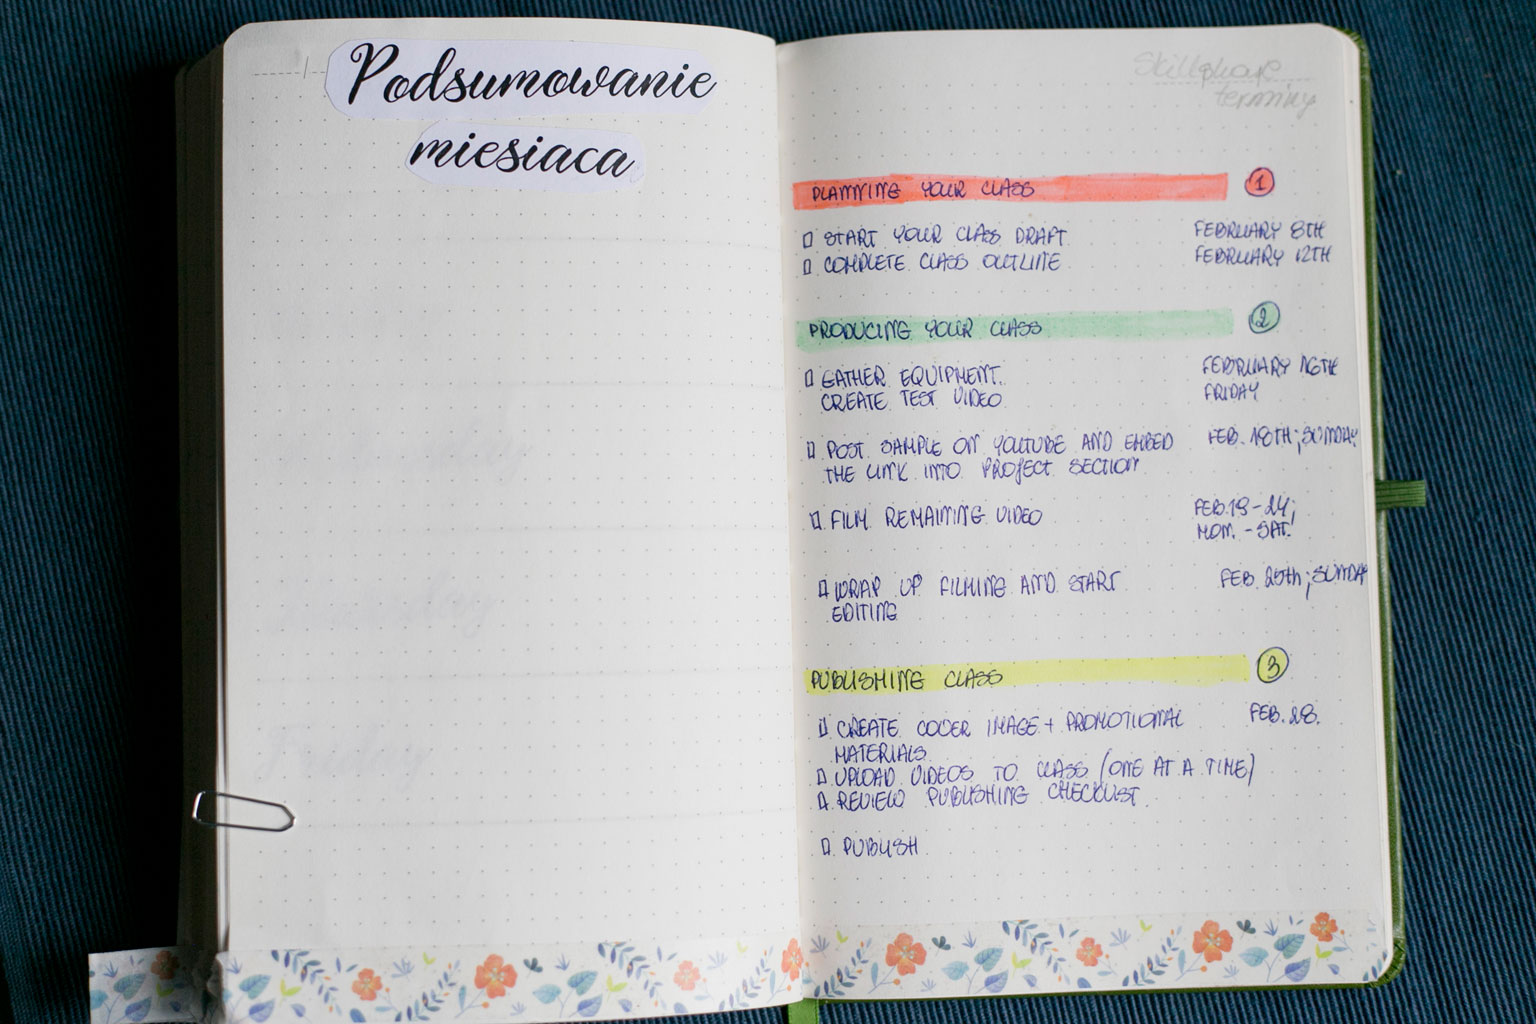 Podsumowanie
miesiaca
Skillshare
terminy
PLANNING YOUR CLASS 1
START YOUR CLASS DRAFT FEBRUARY 8TH
COMPLETE CLASS OUTLINE FEBRUARY 12TH
PRODUCING YOUR CLASS 2
GATHER EQUIPMENT. FEBRUARY 16TH
CREATE TEST VIDEO FRIDAY
POST SAMPLE ON YOUTUBE AND EMBED FEB. 18TH; SUNDAY
THE LINK INTO PROJECT SECTION
FILM REMAINING VIDEO FEB.19-24;
MON. - SAT.
WRAP UP FILMING AND START FEB. 25th; SUNDAY
EDITING
PUBLISHING CLASS 3
CREATE COVER IMAGE + PROMOTIONAL FEB. 28.
MATERIALS
UPLOAD VIDEOS TO CLASS (ONE AT A TIME)
REVIEW PUBLISHING CHECKLIST
PUBLISH
Friday